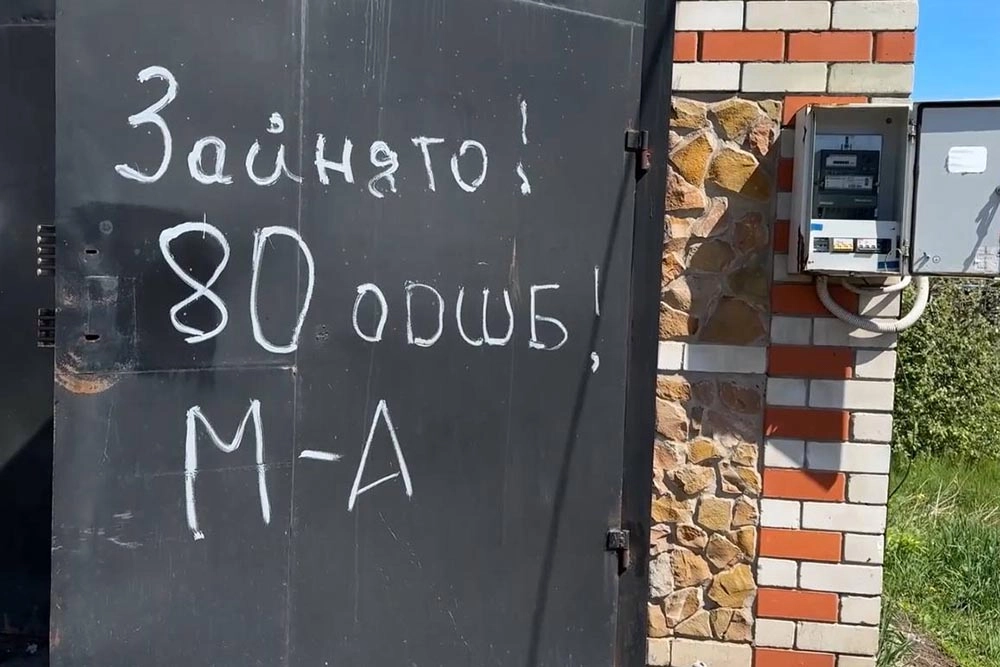 Зайнято!
80 одшб!
М-А